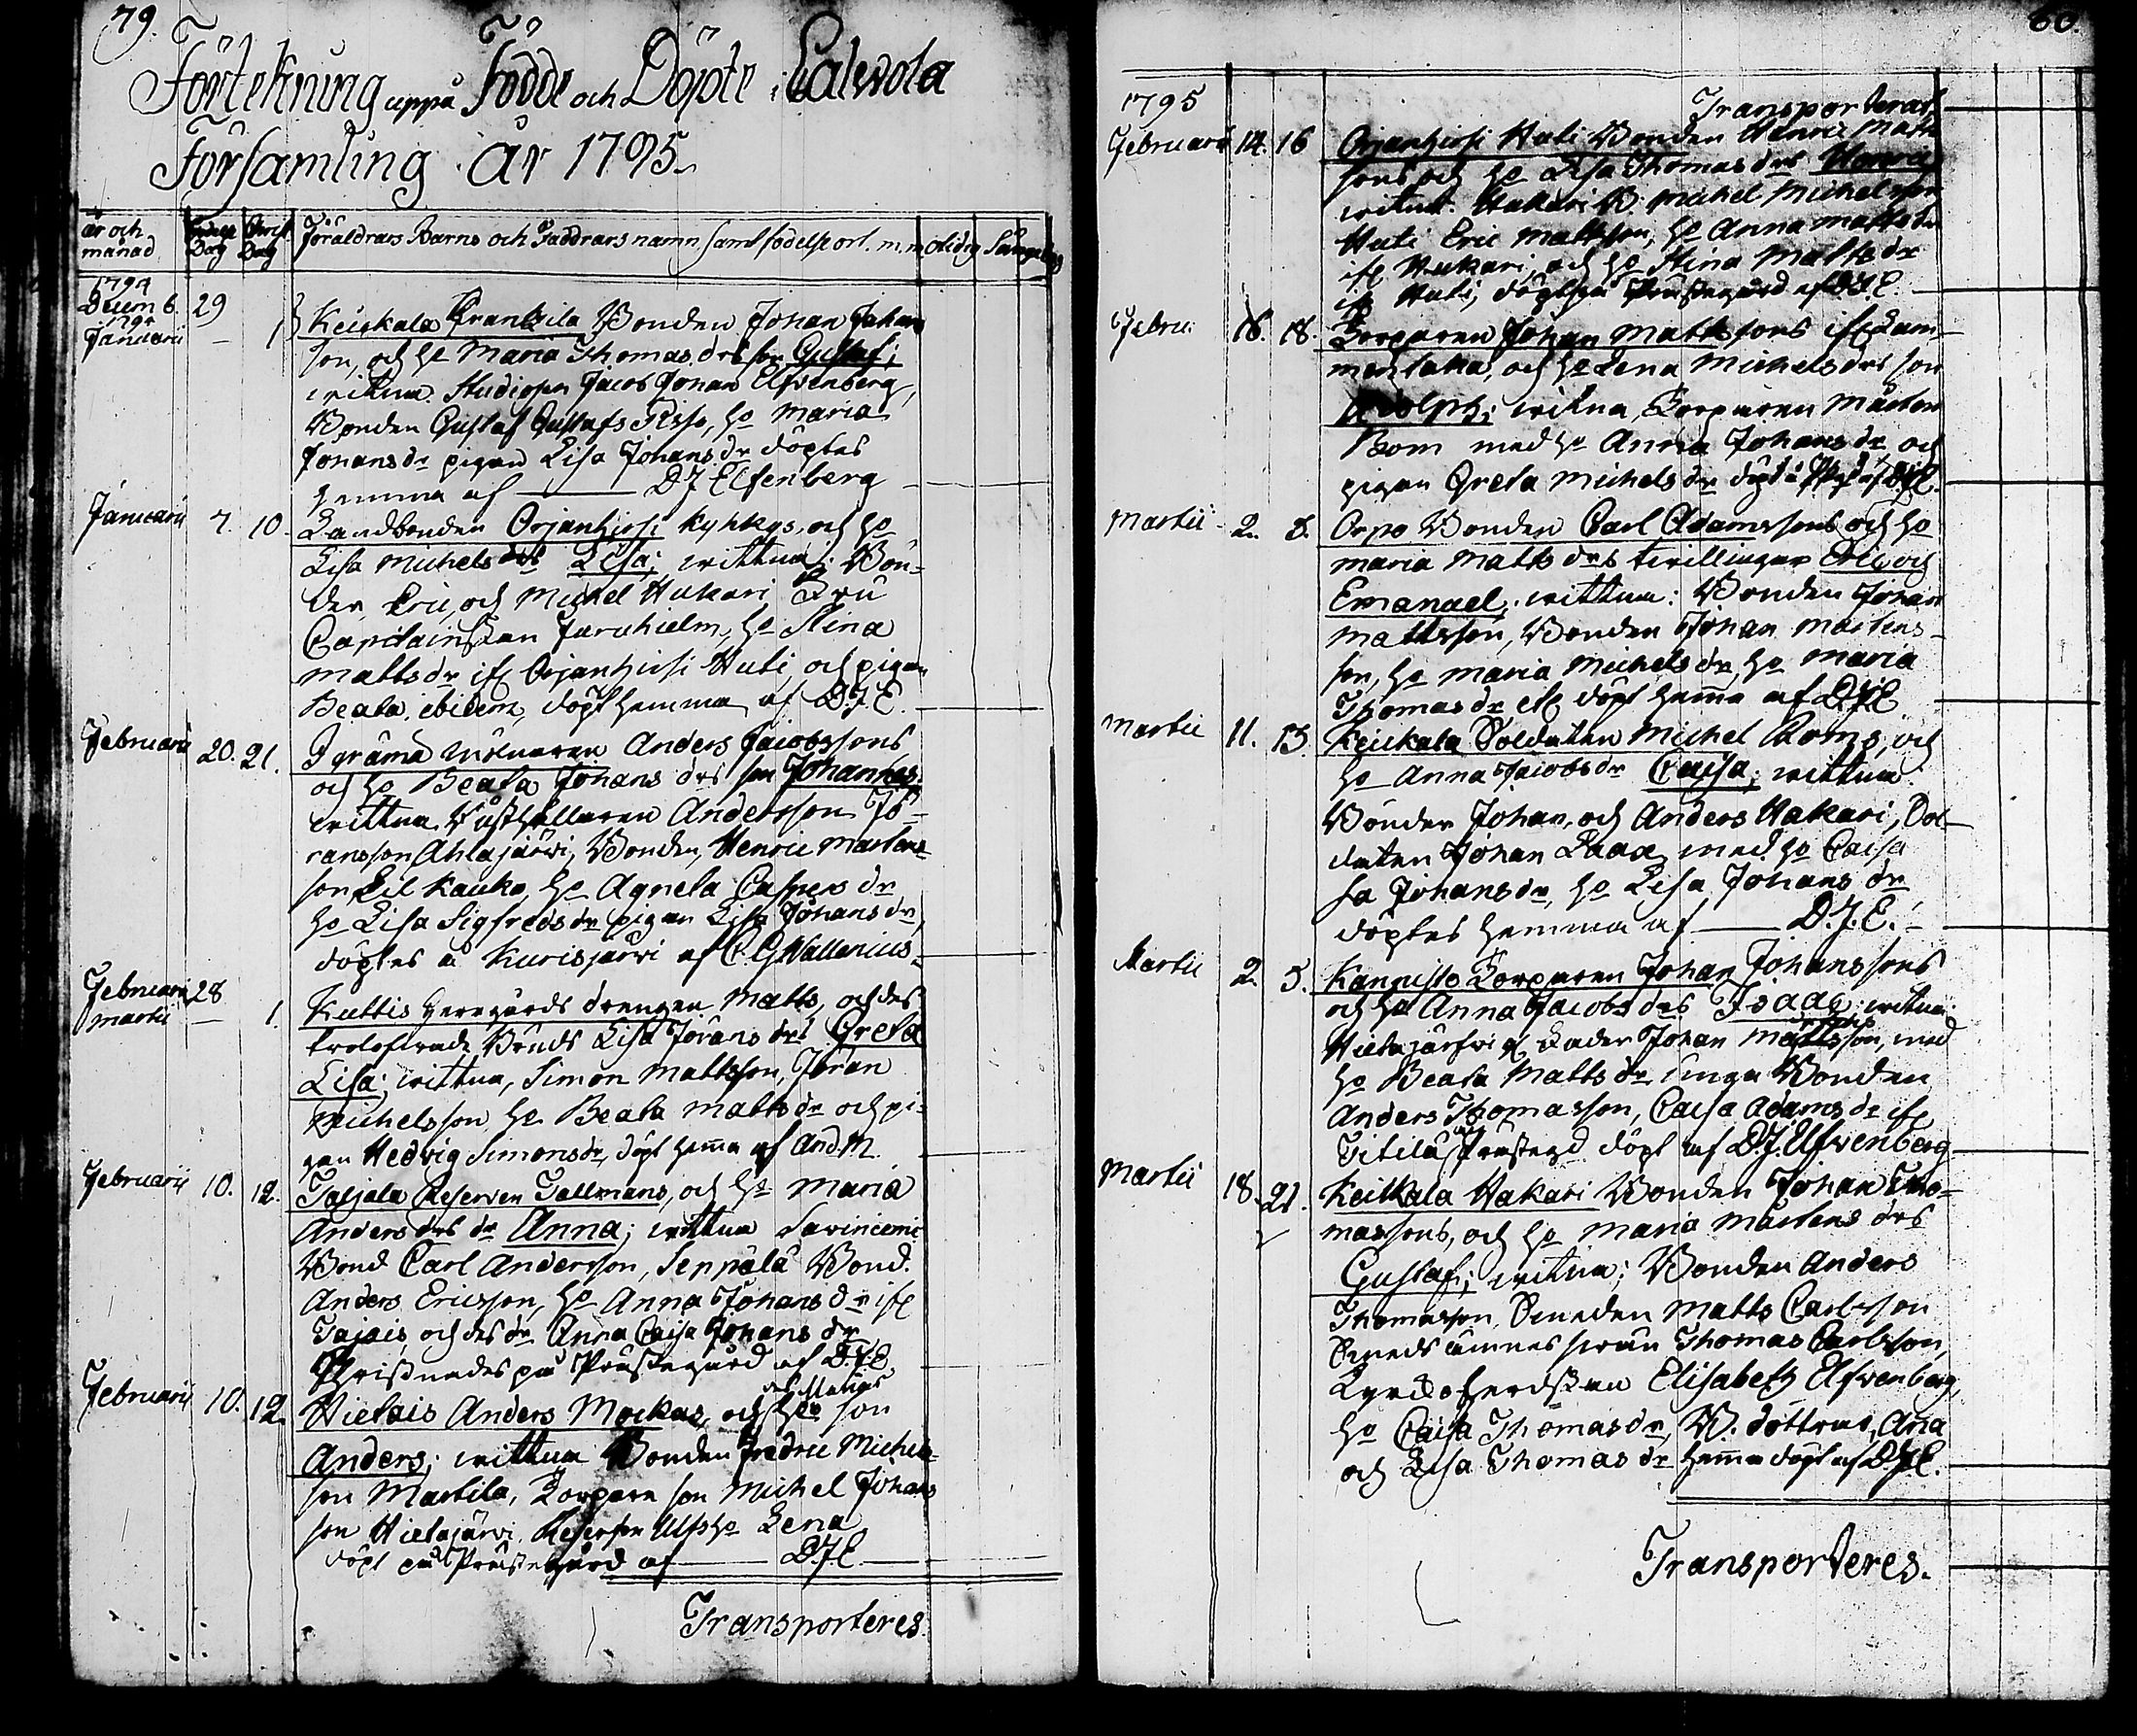 79.
Förtekning uppå Födde och Döpte i Calvola
Församling År 1795.
år och månad Födelse Dag Christ Dag Föräldrars Barns och Faddrars namn samt födelseort m. m. otidig Sängelag
1794
Decemb. 29
1795
Januarii — 1 Keickala Frantzila Bonden Johan Johans
son, och ho Maria Thomas drs son Gustaf;
vittna Studiosen Jacob Johan Elfvenberg,
Bonden Gustaf Gustafs Sipso, ho Maria
Johansdr pigan Lisa Johansdr döptes
hemma af — DJ Elfvenberg
Januarii 7. 10. Landbonden Orjanhirsi Kyhkys, och ho
Lisa Michels drs Lisa; vittna: Bön-
der Eric, och Michel Hakari Fru
Capitainskan Juruhielm, ho Stina
Mattsdr ifr Orjanhirsi Huti, och pigan
Beata ibidem, döpt hemma af D.J.E.
Februarii 20. 21. Igräma mölnaren Anders Jacobssons
och ho Beata Johans drs son Johannes;
vittna Rusthållaren Andersson Jö-
ransson Ahlajärvi, Bonden, Henric Mårtens-
son Lil Kauko, ho Agneta Caspers dr
ho Lisa Sigfreds dr pigan Lisa Johans dr,
döptes å Kurisjärvi af C.G. Wallenius.
Februarii 28
Martii — 1. Kuttis herrgårds drengen Matts, och des
trolofvade Bruds Lisa Jörans drs Greta
Lisa; vittna, Simon Mattsson, Jöran
Michelsson ho Beata Matts dr och pi-
gan Hedvig Simonsdr, döpt hemma af And. M.
Februarii 10. 12. Taljala Reserven Tallmans, och ho Maria
Anders drs dr Anna; vittna Savinieme
Bond Carl Andersson, Seppälä Bond.
Anders Ericsson, ho Anna Johans dr ifr
Tajais, och des dr Anna Caisa Johans dr
Christnades på Prästegård af D.J.E.
Februarii 10. 12. Vietais Anders Mockas, och ho son
Anders; vittna Bonden Fredric Michels-
son Martila, Torpare son Michel Johans
son Hietajärvi, Reserven Ulfs ho Lena
döpt på Prästegård af — D.J.E.
Transporteres
80.
1795 Transporterat
Februarii 14. 16 Orjanhirsi Huti Bonden Henric Matts
sons och ho Lisa Thomas drs Henric
vittna. Hakari B. Michel Michelsson
Huti Eric Mattsson, ho Anna Matts dr
ifr Hakari, och ho Stina Matts dr
ifr Huti, döpt på Prästegård af D.J.E.
Februa: 16. 18. Torparen Johan Matts sons ifr Lam-
menlaka, och ho Lena Michels drs son
Adolph; vittna, Torparen Mårten
Bom med ho Anna Johans dr och
pigan Greta Michels dr döpt å Pgd af DJE.
Martii 2. 3. Orpo Bonden Carl Adamssons och ho
Maria Matts drs tvillingar Eric och
Emanael; vittna: Bonden Johan
Mattsson, Bonden Johan Mårtens-
son, ho Maria Michels dr, ho Maria
Thomas dr etc döpt hemma af D.J.E.
Martii 11. 13. Keickala Soldaten Michel Roms, och
ho Anna Jacobs dr Caisa; vittna
Bönder Johan, och Anders Hakari, Sol-
daten Johan Laax, med ho Caisa
sa Johansdr, ho Lisa Johans dr
döptes hemma af — D.J.E.
Martii 2. 5. Kannisto Torparen Johan Johanssons
och ho Anna Jacobs drs Isaac; vittna
Hietajärfvi Johan Mårtensson, med
ho Beata Matts dr, unga Bonden
Anders Thomasson, Caisa Adams dr ifr
Titilä, Prästegd döpt af D.J. Elfvenberg
Martii 18. 21. Keickala Hakari Bonden Johan Tho-
massons, och ho Maria Mårtens drs
Gustaf; vittna: Bonden Anders
Thomasson, Smeden Matts Carlsson
Smeds ämnes svän Thomas Carlsson,
Kyrckoherdskan Elisabeth Elfvenberg,
ho Caisa Thomas dr, B. döttrar, Aria
och Lisa Thomas dr hemma döpt af D.J.E.
Transporteres.